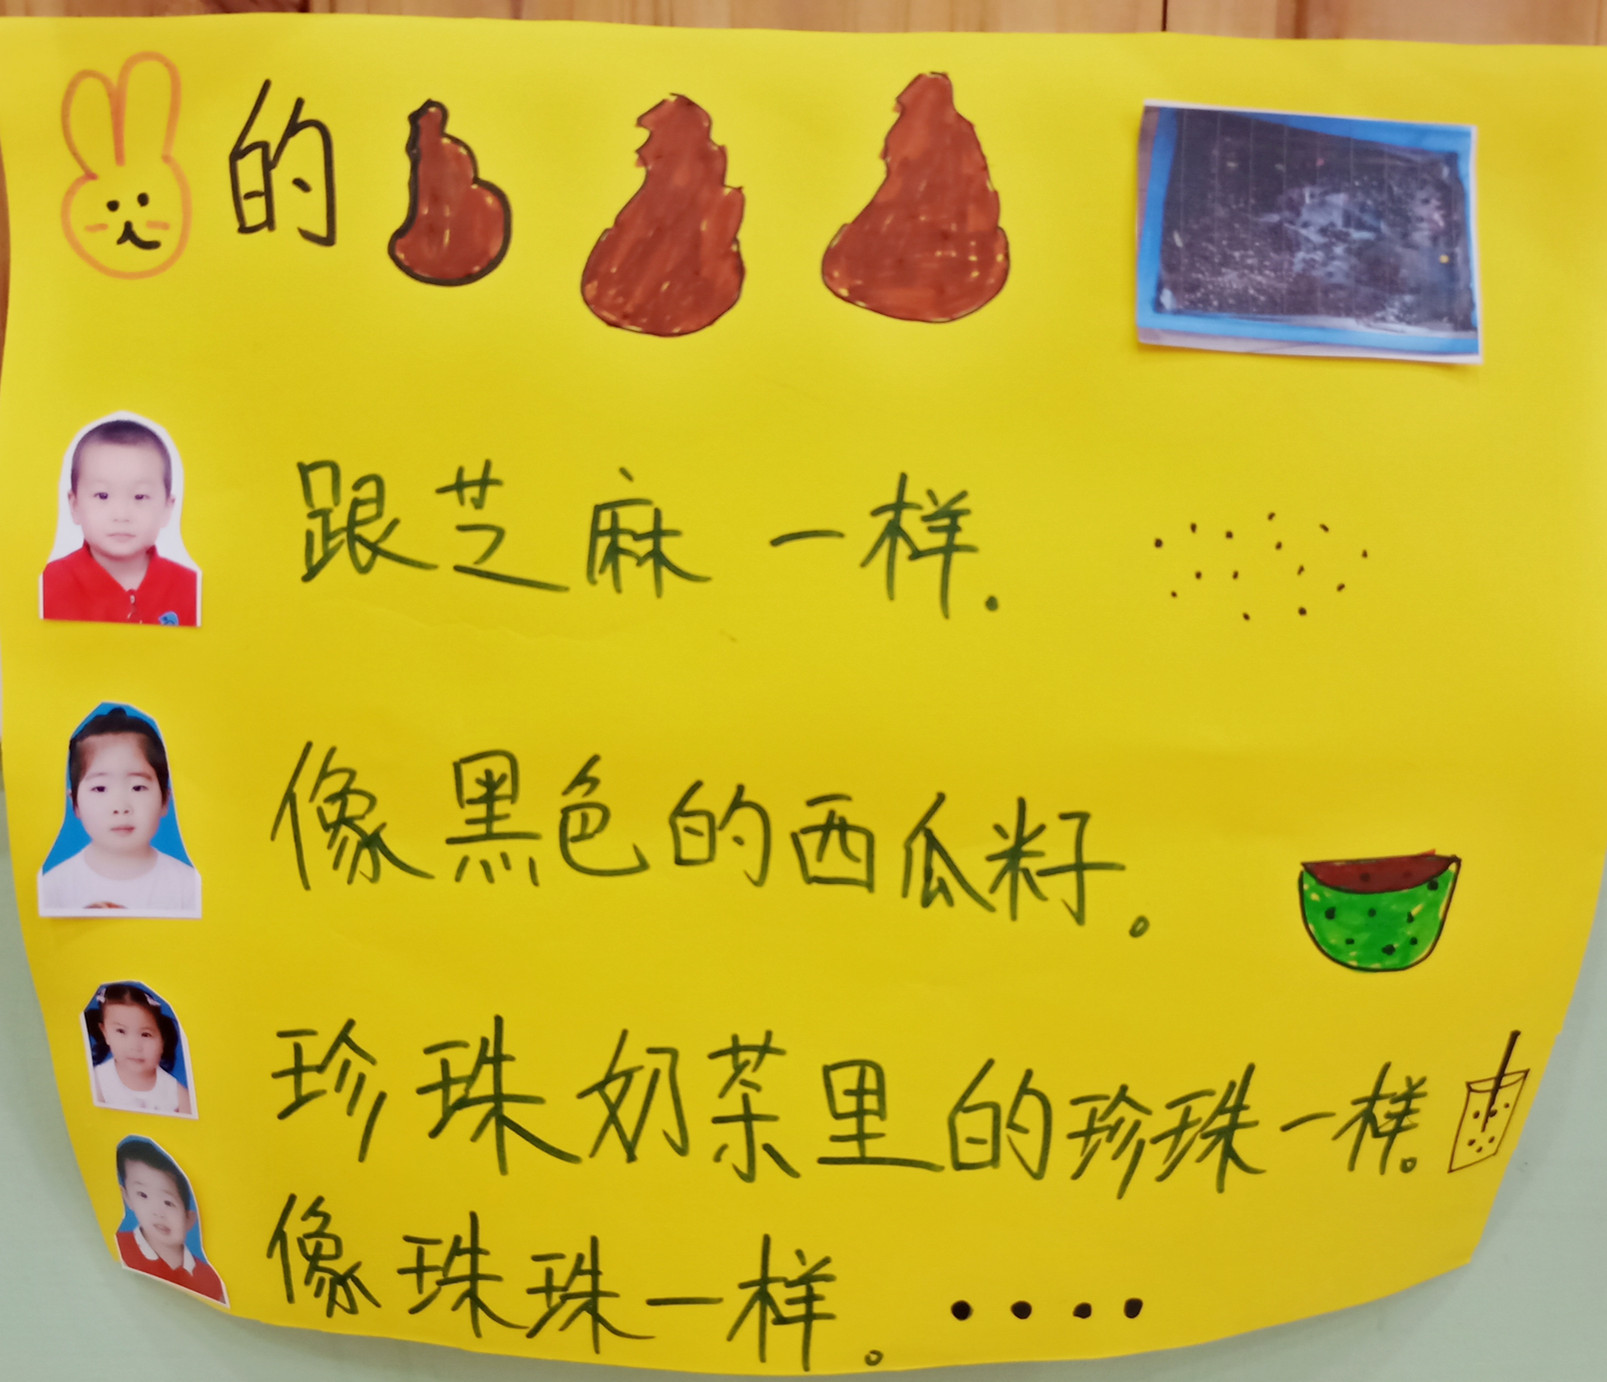 的
跟芝麻一样。
像黑色的西瓜籽。
珍珠奶茶里的珍珠一样。
像珠珠一样。